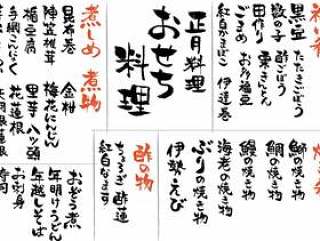 祝い肴
黒豆
たたきごぼう
数の子
酢ごぼう
田作り
栗きんとん
ごまめ
お多福豆
紅白かまぼこ
伊達巻
正月料理
おせち
料理
煮しめ
煮物
昆布巻
金柑
陣笠椎茸
梅花にんじん
楯豆腐
里芋
八ッ頭
手綱こんにゃく
花蓮根
矢羽根蓮根
焼き物
鰤の焼き物
鯛の焼き物
鰻の焼き物
海老の焼き物
ぶりの焼き物
伊勢えび
酢の物
ちょろぎ
酢蓮
紅白なます
おぞう煮
年明けうどん
年越しそば
お刺身
寿司